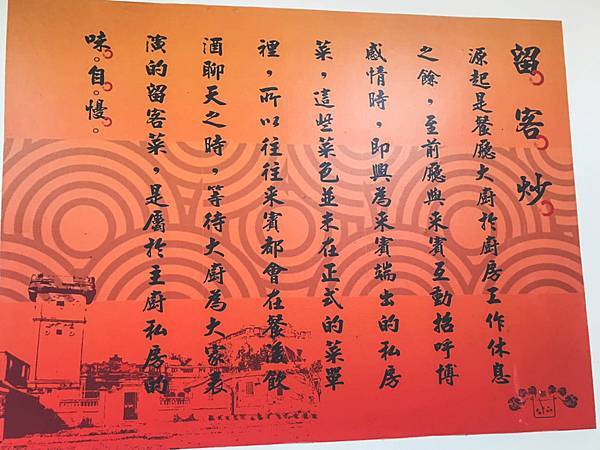 留客炒
源起是餐廳大廚於廚房工作休息
之餘，至前廳與來賓互動招呼博
感情時，即興為來賓端出的私房
菜，這些菜色並未在正式的菜單
裡，所以往往來賓都會在餐後飲
酒聊天之時，等待大廚為大家表
演的留客菜，是屬於主廚私房的
味。自。慢。